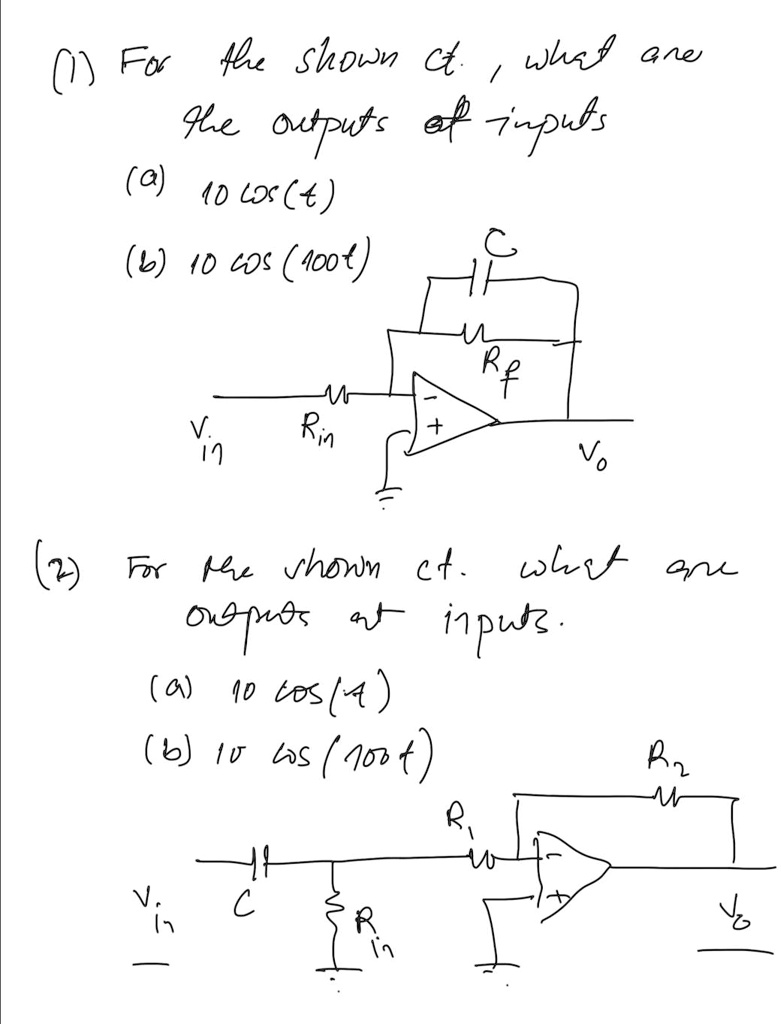 (1) For the shown ct. , what are
the outputs at inputs
(a) 10 cos(t)
(b) 10 cos (100t)
C
Rf
-
+
Vin
Rin
Vo
(2) For the shown ct. what are
outputs at inputs.
(a) 10 cos(t)
(b) 10 cos (100t)
R2
R1
-
+
Vin
C
Rin
Vo